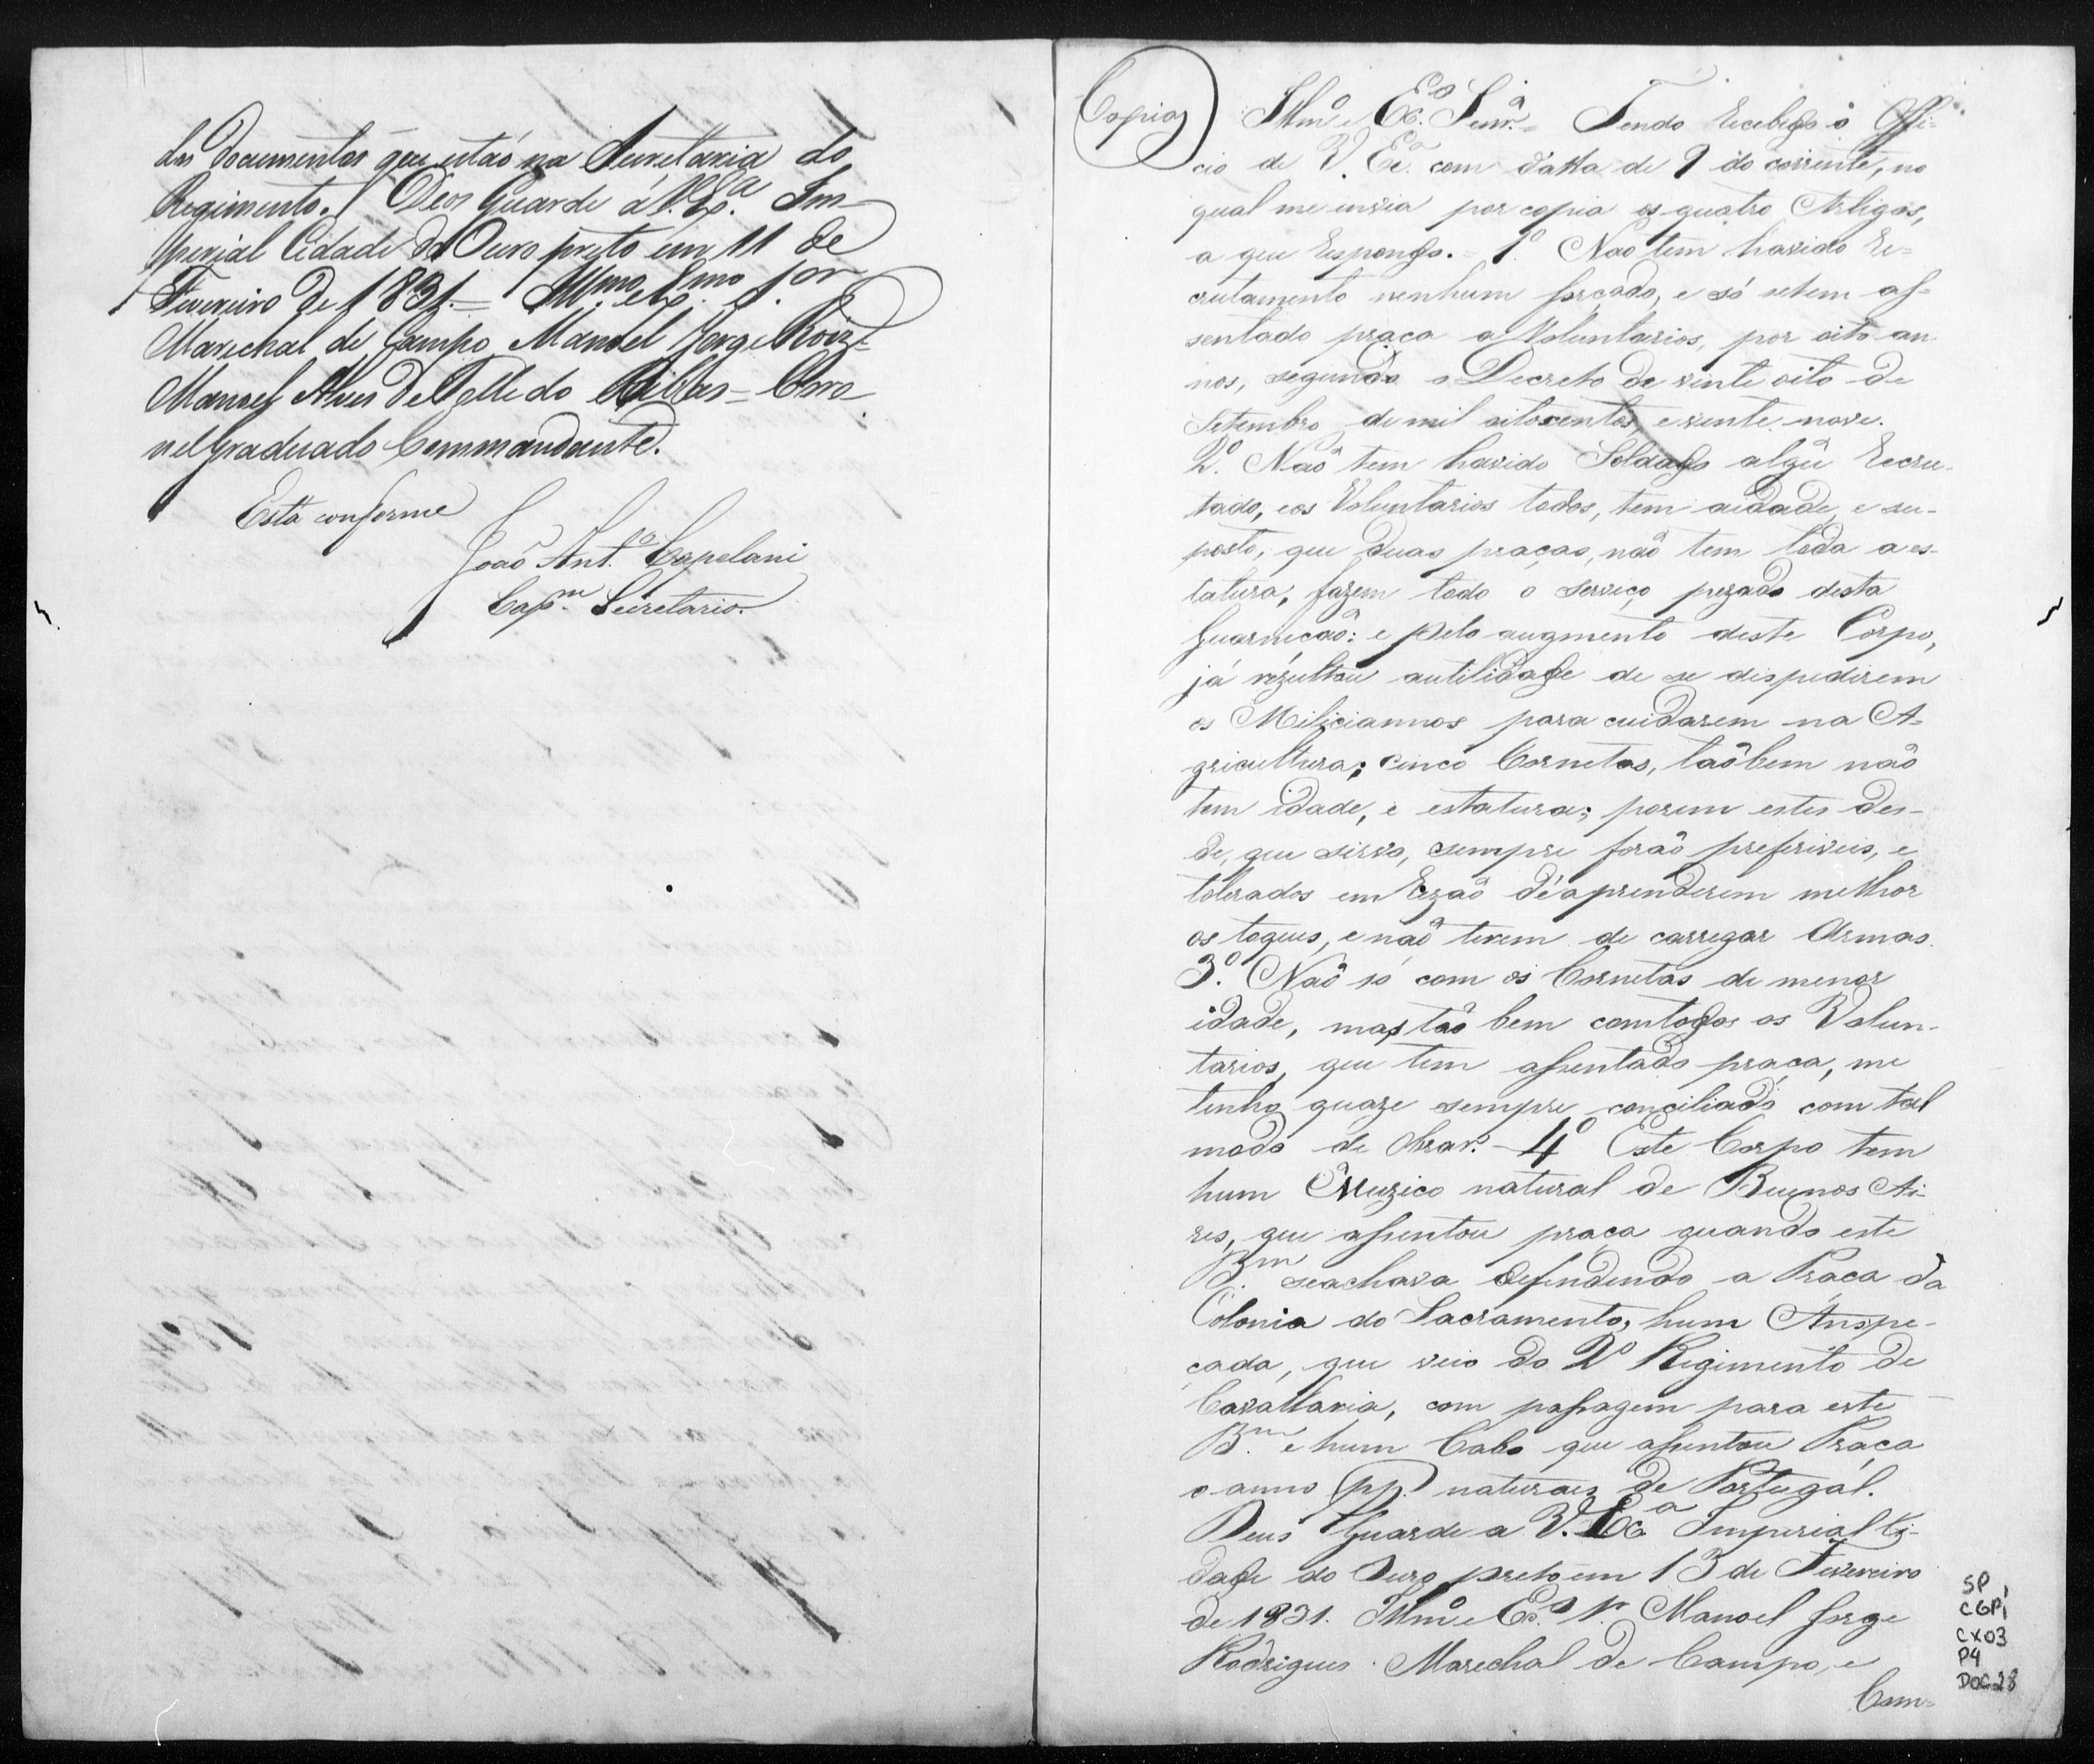 dos documentos que estaõ na Secretaria do
Regimento. Deos Guarde á V. Ex.ª Im
perial Cidade do Ouro preto em 11 de
Fevereiro de 1831. = Ill.mo e Ex.mo S.or
Marechal de Campo Manoel Jorge Roiz =
Manoel Alves de Tolledo Ribas = Coro
nel graduado Commandante.
Está conforme
Joaõ Ant.º Capelani
Cap.m Secretario.
Copia
Illm.º e Ex.º Senr. = Tendo recebido o Offi-
cio de V. Ex.ª com datta de 9 do corrente, no
qual me invia por copia os quatro Artigos,
a que respondo. = 1.º Naõ tem havido re=
crutamento nenhum forçado, e só se tem as=
sentado praça a Voluntarios, por oito an
nos, segundo o Decreto de vinte oito de
Setembro de mil oitocentos e vinte nove.
2.º Naõ tem havido Soldado algũ recru-
tado, e os Voluntarios todos, tem a idade, e su-
posto, que duas praças, naõ tem toda a es-
tatura, fazem todo o serviço pezado desta
Guarniçaõ: e pelo augmento deste Corpo,
já rezultou a utilidade de se dispedirem
os Miliciannos para cuidarem na A-
gricultura; cinco Cornetas, taõbem naõ
tem idade, e estatura; porem estes des-
de, que sirvo, sempre foraõ preferiveis, e
tolerados em rezaõ dé aprenderem melhor
os toques, e naõ terem de carregar Armas.
3.º Naõ só com os Cornetas de menor
idade, mas taõ bem com todos os Volun-
tarios, que tem assentado praça, me
tenho quaze sempre conciliado com tal
modo de obrar. - 4.º Este Corpo tem
hum Muzico natural de Buenos Ai-
res, que assentou praça quando este
B.m se achava defendendo a Praça da
Colonia do Sacramento, hum Anspe-
çada, que veio do 2.º Regimento de
Cavallaria, com passagem para este
B.m e hum Cabo que assentou Praça
o anno pp. naturaes de Portugal.
Deus Guarde a V. Ex.ª Imperial Ci-
dade do Ouro preto em 13 de Fevereiro
de 1831. Illm.º e Ex.º Sr. Manoel Jorge
Rodrigues. Marechal de Campo, e
Com=
SP
CGP1
CX03
P4
DOC28